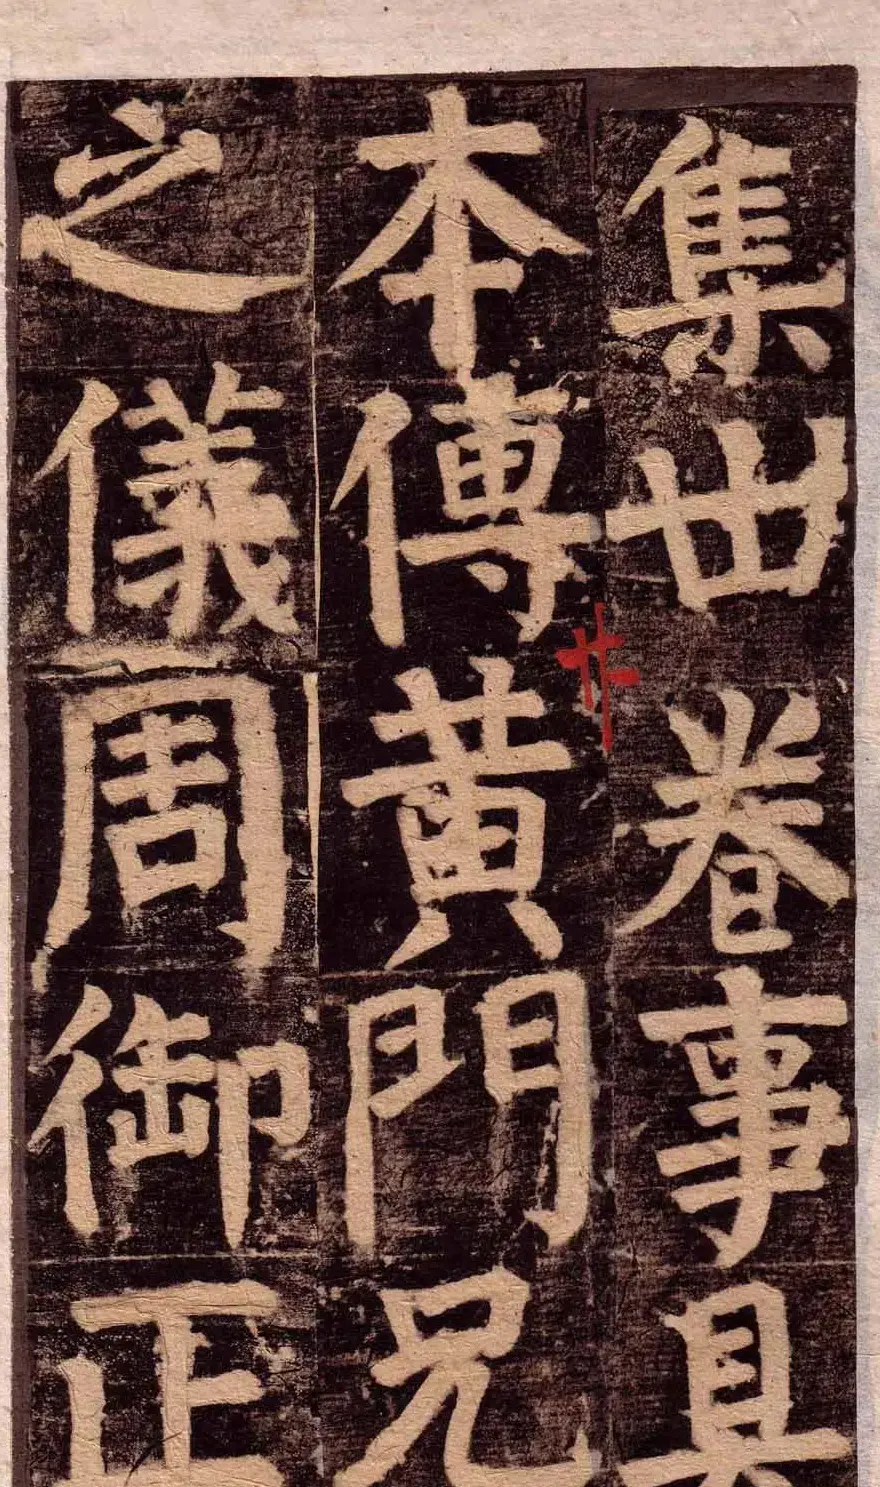 集丗卷事具
本傳黃門兄
之儀周御正